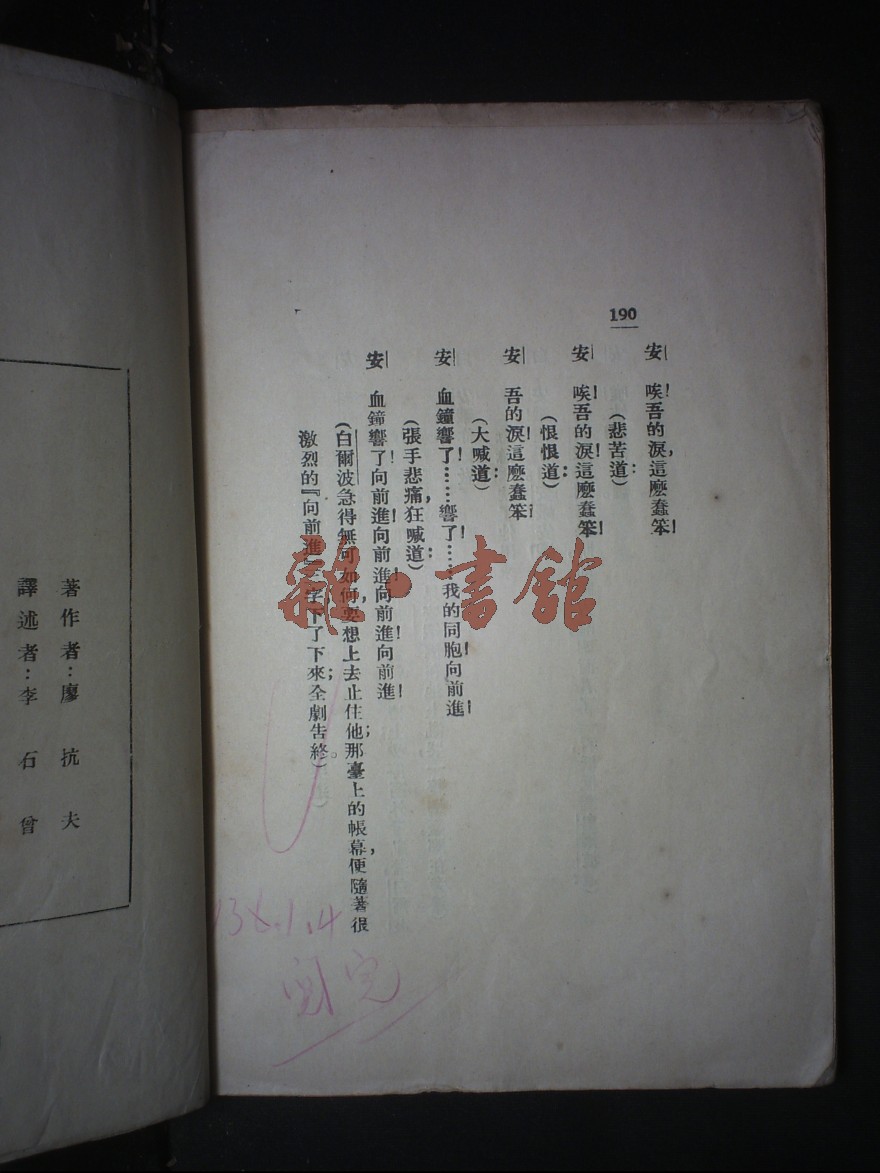 190
安　唉!吾的淚,這麼蠢笨!
(悲苦道:)
安　唉!吾的淚!這麼蠢笨!
(恨恨道:)
安　吾的淚!這麼蠢笨!
(大喊道:)
安　血鐘響了!……響了!……我的同胞!向前進!
(張手悲痛,狂喊道:)
安　血鐘響了!向前進!向前進!向前進!向前進!
(白爾波急得無可如何,要想上去止住他;那臺上的帳幕,便隨著很
激烈的『向前進』三字下了下來;全劇告終。)
雜·書館
138.1.4
完
著作者:廖抗夫
譯述者:李石曾